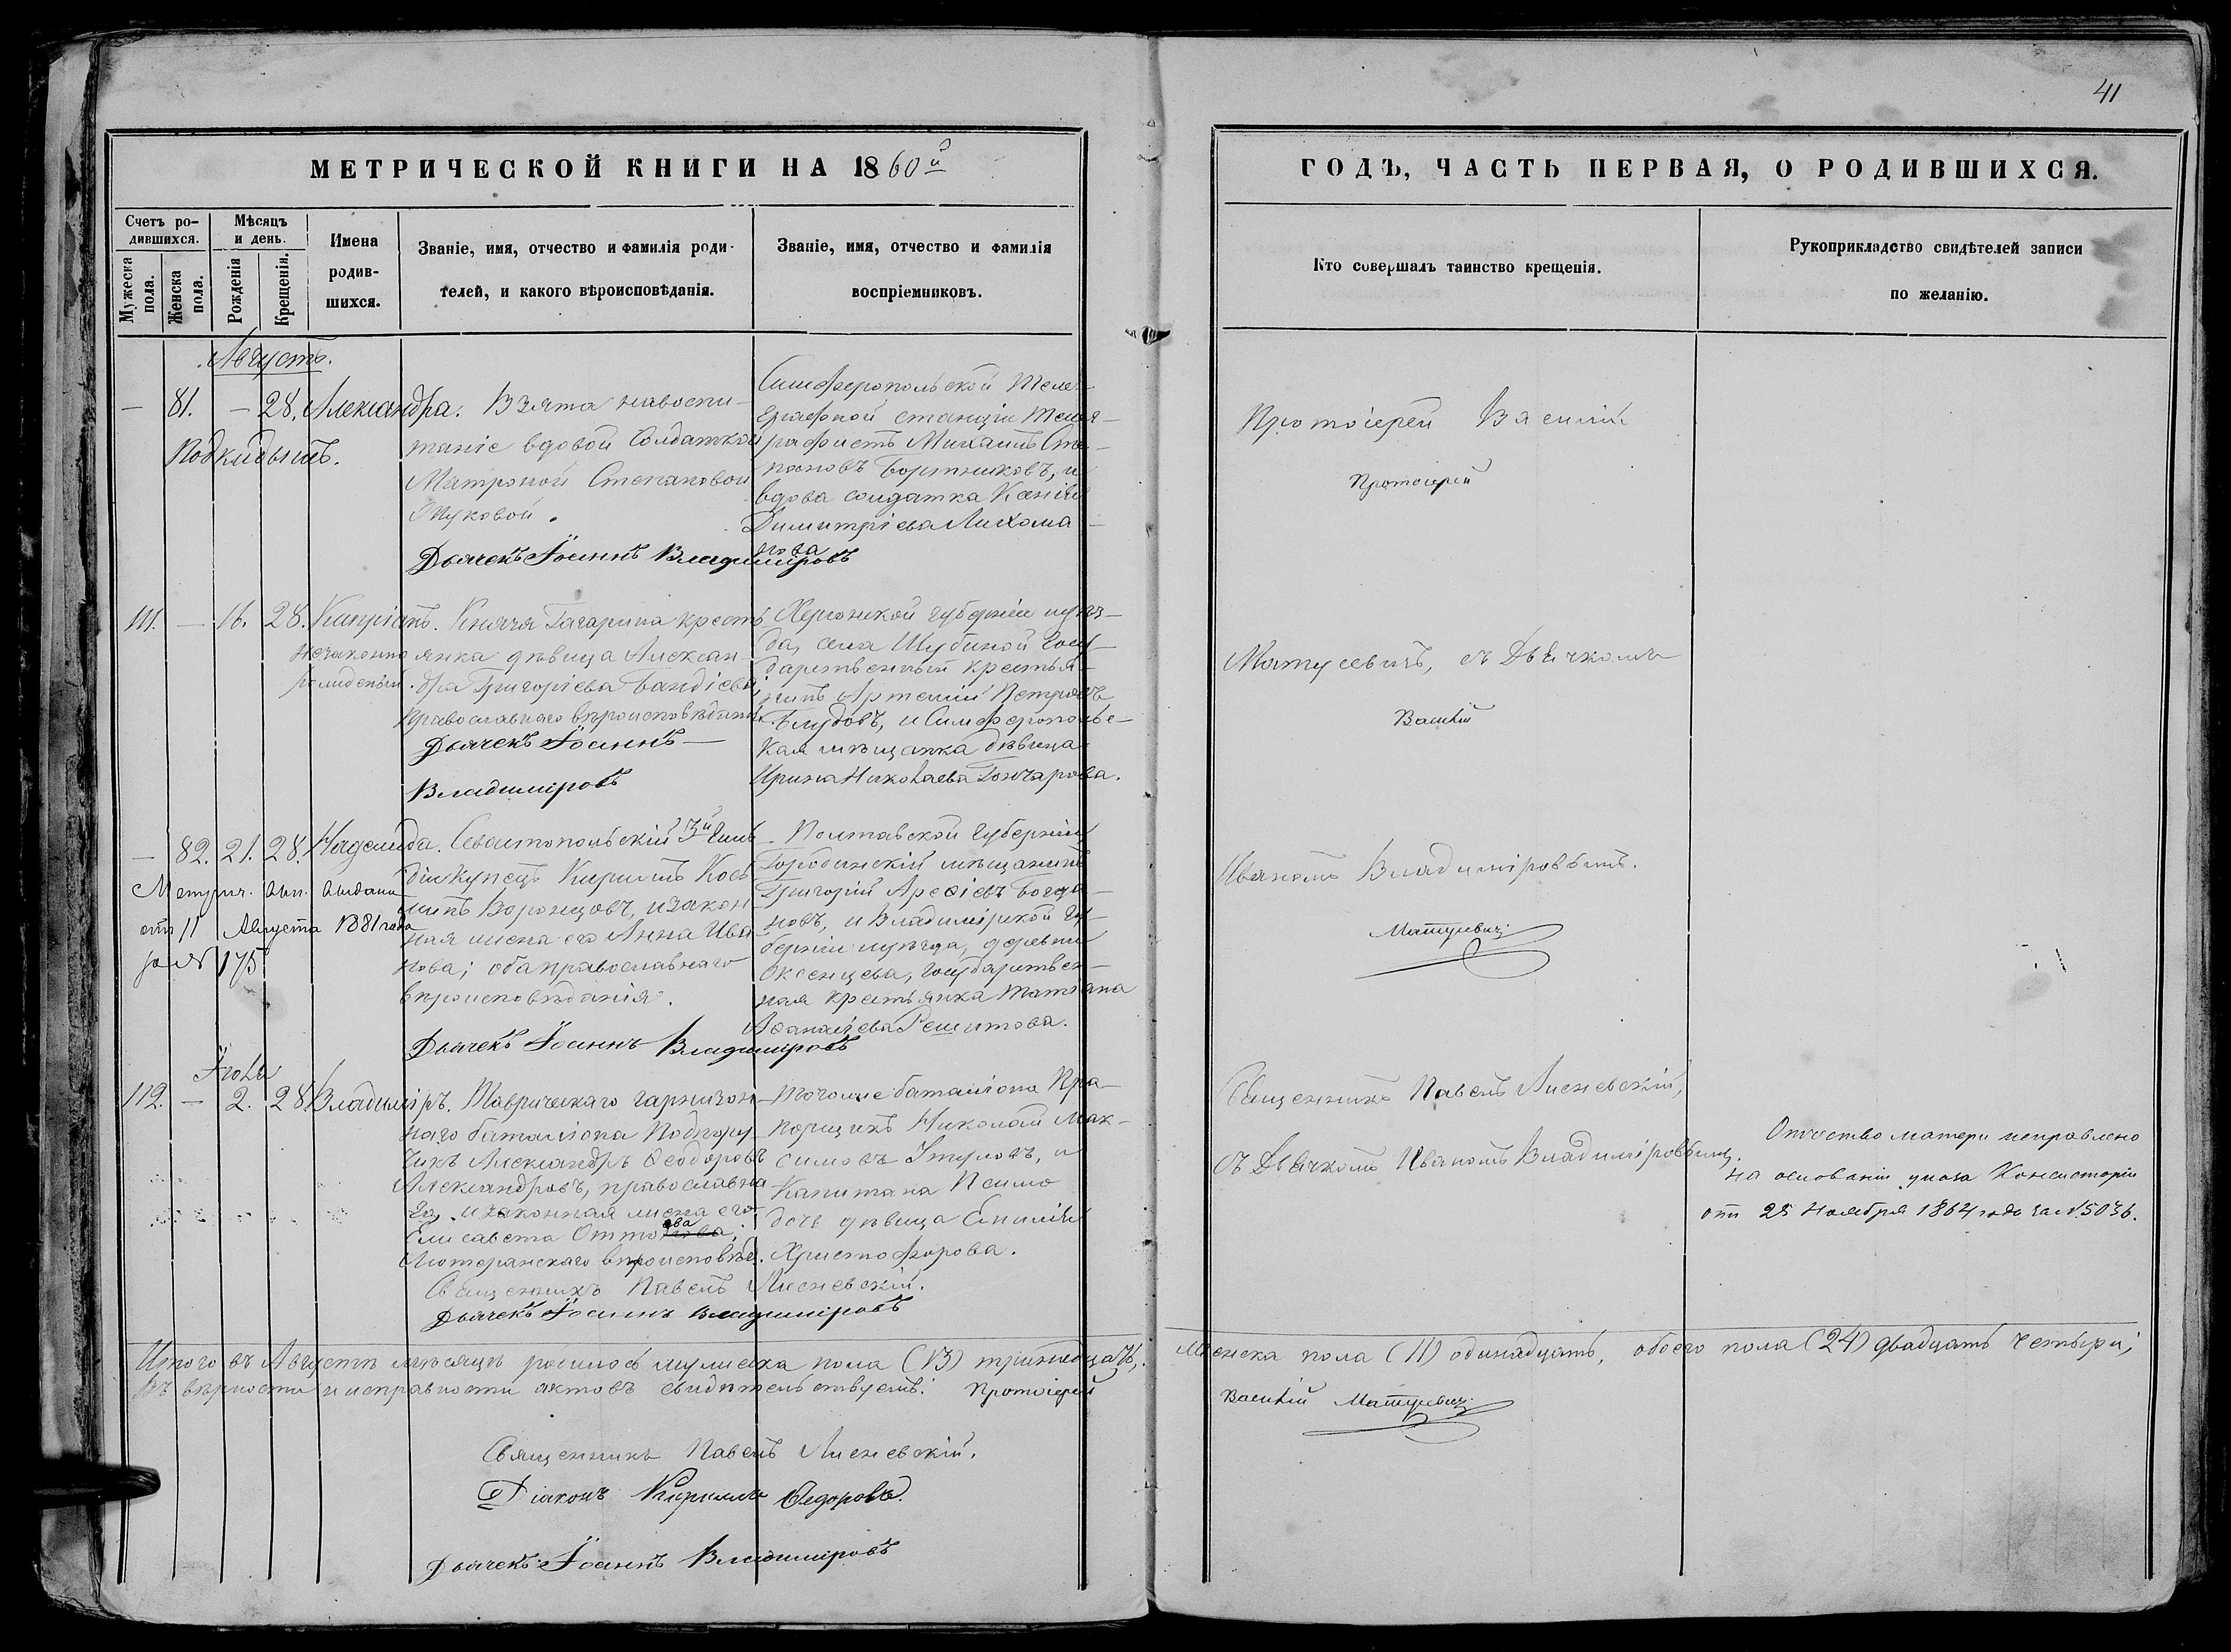 41
МЕТРИЧЕСКОЙ КНИГИ НА 1860й
ГОДЪ, ЧАСТЬ ПЕРВАЯ, О РОДИВШИХСЯ.
Счетъ ро-
дившихся.
Мужеска
пола.
Женска
пола.
Мѣсяцъ
и день.
Рожденія
Крещенія.
Имена
родив-
шихся.
Званіе, имя, отчество и фамилія роди-
телей, и какого вѣроисповѣданія.
Званіе, имя, отчество и фамилія
воспріемниковъ.
Кто совершалъ таинство крещенія.
Рукоприкладство свидѣтелей записи
по желанію.
Августъ.
— 81. — 28. Александра.
Подкидышъ.
Взята на воспи-
таніе вдовой Солдаткой
Матроной Степановой
Жуковой.
Дьячекъ Іоаннъ Владиміровъ
Симферопольской Теле-
графной станціи Телег-
рафистъ Михаилъ Сте-
пановъ Бортниковъ, и
вдова солдатка Ксенія
Димитріева Лихома-
нова
Протоіерей Василій
Протоіерей
111. — 16. 28. Кипріанъ.
незаконно
рожденный.
Князя Гагарина кресть
янка дѣвица Алексан-
дра Григоріева Бандіева,
православнаго вѣроисповѣданія.
Дьячекъ Іоаннъ
Владиміровъ
Херсонской губерніи и уѣз-
да, села Шубиной госу-
дарственный крестья-
нинъ Артемій Петровъ
Блудовъ, и Симферопольс-
кая мѣщанка дѣвица
Ирина Николаева Гончарова.
Матусевичъ, съ Дьячкомъ
Василій
— 82. 21. 28. Надежда.
Метрич. вып. выдана
отъ 11 Августа 1881 года
за № 175
Севастопольскій 3й Гиль
діи Купецъ Кирилъ Кось
минъ Воронцовъ, и закон
ная жена его Анна Ива
нова; оба православнаго
вѣроисповѣданія.
Дьячекъ Іоаннъ Владиміровъ
Полтавской Губерніи
мѣщанинъ
Григорій Арефіевъ Богда-
новъ, и Владимірской Гу-
берніи и уѣзда, деревни
государствен-
ная крестьянка Татіана
Афанасіева Решитова.
Иваномъ Владиміровымъ.
Матусевичъ
Іюля
112. — 2. 28. Владиміръ.
Таврическаго гарнизон
наго баталіона Подпору-
чикъ Александръ Ѳеодоровъ
Александровъ, православна
го, и законная жена его
Елисавета Оттова;
Лютеранскаго вѣроисповѣд.
Священникъ Павелъ Лисневскій.
Дьячекъ Іоаннъ Владиміровъ
Тогоже баталіона Пра-
порщикъ Николай Мак-
симовъ и
Капитана
дочь дѣвица Емилія
Христофорова.
Священникъ Павелъ Лисневскій,
съ Дьячкомъ Иваномъ Владиміровымъ.
Отчество матери исправлено
на основаніи указа Консисторіи
отъ 25 Ноября 1864 года за №5036.
Итого въ Августѣ мѣсяцѣ родилось мужеска пола (13) тринадцать, женска пола (11) одинадцать, обоего пола (24) двадцать четыри;
Въ вѣрности и исправности актовъ свидѣтельствуемъ: Протоіерей Василій Матусевичъ
Священникъ Павелъ Лисневскій.
Діаконъ Кириллъ Ѳедоровъ.
Дьячекъ Іоаннъ Владиміровъ